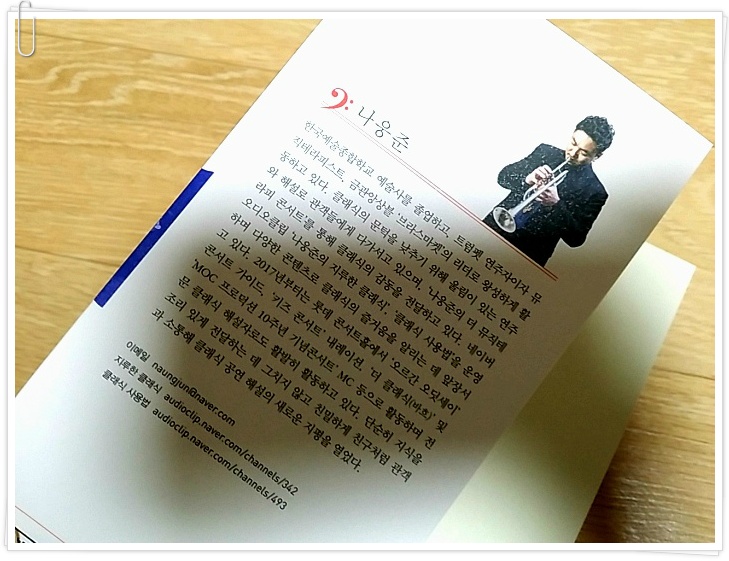 나웅준
한국예술종합학교 예술사를 졸업하고, 트럼펫 연주자이자 뮤
직테라피스트, 금관앙상블 '브라스마켓'의 리더로 왕성하게 활
동하고 있다. 클래식의 문턱을 낮추기 위해 울림이 있는 연주
와 해설로 관객들에게 다가서고 있으며, '나웅준의 더 뮤직테
라피 콘서트'를 통해 클래식의 감동을 전달하고 있다. 네이버
오디오클립 '나웅준의 지루한 클래식', '클래식 사용법'을 운영
하며 다양한 콘텐츠로 클래식의 즐거움을 알리는 데 앞장서
고 있다. 2017년부터는 롯데 콘서트홀에서 '오르간 오딧세이'
콘서트 가이드, '키즈 콘서트' 내레이션, '더 클래식(바흐)' 및
MOC 프로덕션 10주년 기념콘서트' MC 등으로 활동하며 전
문 클래식 해설자로도 활발히 활동하고 있다. 단순히 지식을
조리 있게 전달하는 데 그치지 않고 친밀하게 친구처럼 관객
과 소통해 클래식 공연 해설의 새로운 지평을 열었다.
이메일 naungjun@naver.com
지루한 클래식 audioclip.naver.com/channels/342
클래식 사용법 audioclip.naver.com/channels/493